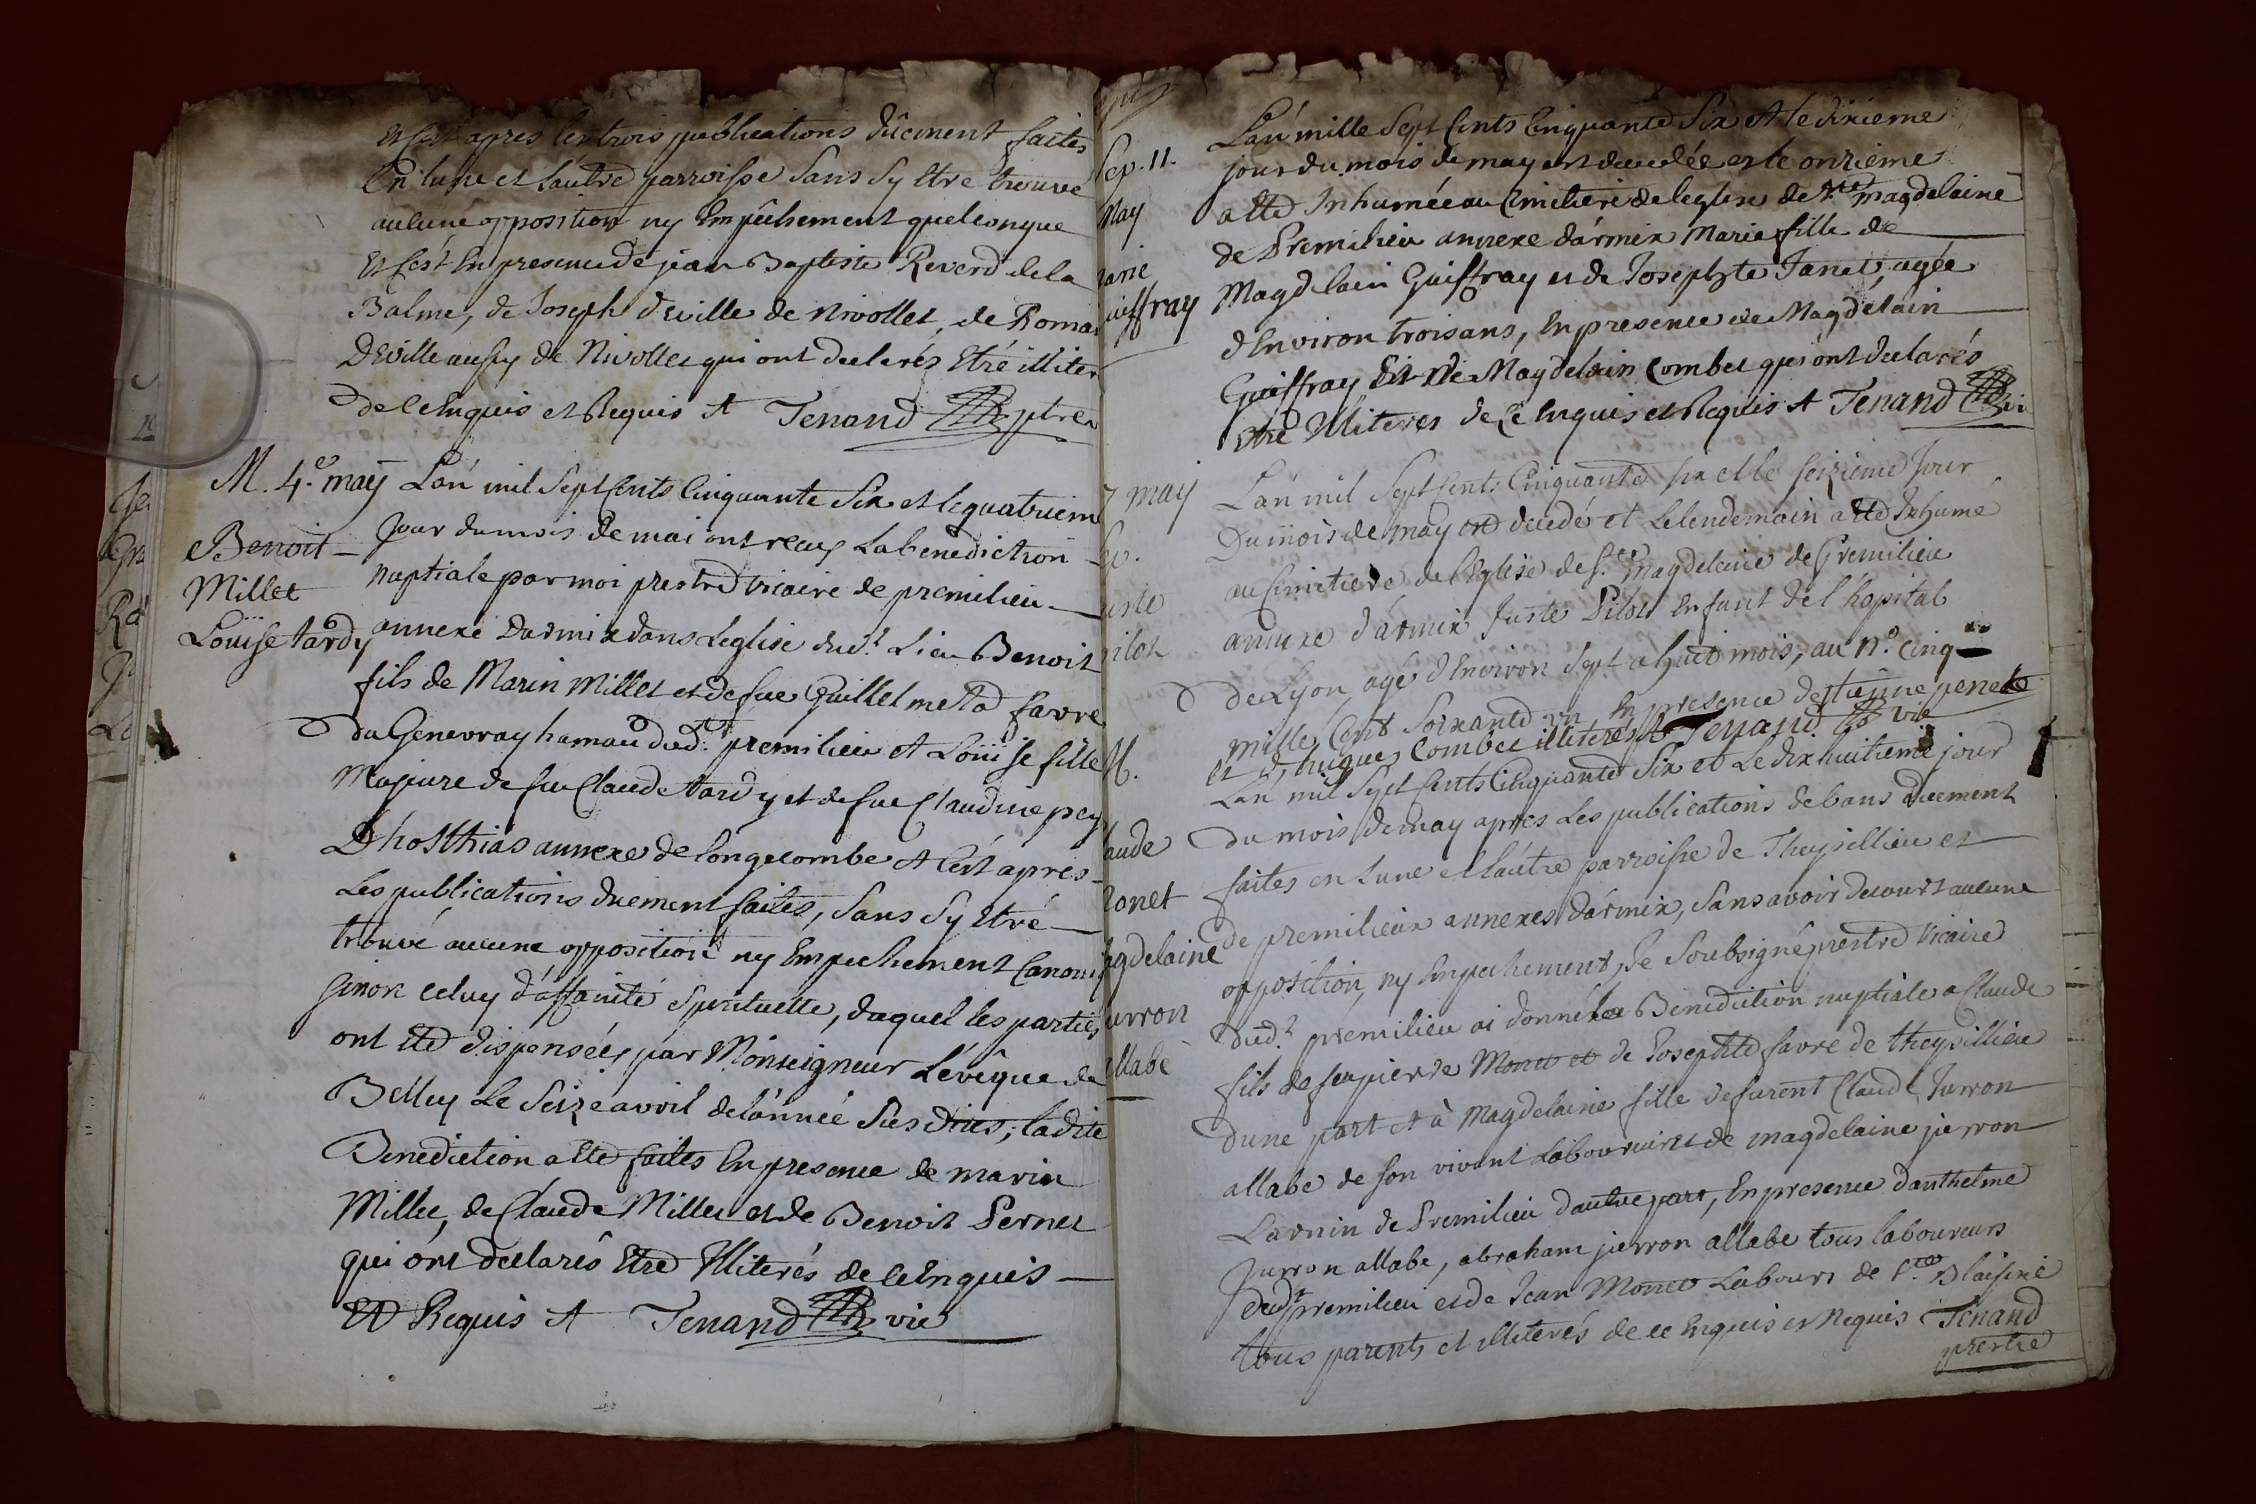 Et c'est apres les trois publications düement faites
En l'une et l'autre parroisse Sans Sy Etre trouvé
aucune opposition ny Empêchement quelconque
Et c'est En presence de jean Baptiste Reverd de la
Balme, de Joseph Deville de Nivollet, de Roma
Deville aussy de Nivollet qui ont declarés Etré illiter
de ce Enquis et Requis A Tenand ptre
M. 4.e maÿ
Benoit
Millet
Louise tardy
L'an mil Sept Cents Cinquante Six et le quatriem
Jour du mois de mai ont reçus La benediction
Nuptiale par moi prestre vicaire de premilieu
annexe Darmix dans L'eglise dud.t Lieu Benoit
fils de Marin Millet et de fue Guillelmette favre
du Genevray hamau dud.t premilieu et Loüise fille
Majeure de fu Claude tardy et de fue Claudine pey
D'hosthias annexe de Longecombe et C'est apres
Les publications duement faites, Sans Sy Etré
trouvé aucune opposition ny Empechement Canoniq
Sinon celuy d'affinité Spirituelle, duquel les parties
ont Eté dispensées par Monseigneur L'evêque de
Belley Le Seize avril de l'année Sus dites; ladite
Benediction a Eté faites En presence de marin
Millet, de Claude Millet et de Benoit Pernet
qui ont declarés Etre Illiterés de ce Enquis
Et Requis A Tenand vic
Sep. 11.
May
arie
uiffray
L'an mille Sept Cents Cinquante Six et le dixieme
jour du mois de may est decedée et le onzieme
a eté Inhumée au Cimetiere de leglise de Ste magdelaine
de Premilieu annexe d'armix Marie fille de
Magdelain Guiffray et de Josephte Janet, agée
d'Environ trois ans, En presence de Magdelain
Guiffray et de Magdelain Combet qui ont declarés
Etre Illiteres de Ce Enquis et Requis A Tenand
7 maÿ
uste
ilot
L'an mil Sept Cents Cinquante Six et le seizieme Jour
Du mois de may est decedé et Le lendemain a eté Inhumé
au Cimetiere de l'Eglise de S.te magdelaine de Premilieu
annexe d'armix Juste Pilot Enfant de l'hopital
de Lyon, agé d'Environ Sept a huit mois, au N.o Cinq
mille Cent Soixante un En presence d'estienne penet
et d'hugues Combet illiterés A Tenand vic
M.
laude
onet
agdelaine
urron
llabe
L'an mil Sept Cents Cinquante Six et Le dix huitieme jour
du mois de may apres Les publications de bans duement
faites en L'une et L'autre parroisse de Theysillieu et
de premilieu annexes d'armix, Sans avoir decouvert aucune
opposition, ny Empechement, Je Soubsigné prestre Vicaire
dud.t premilieu ai donné la Benediction nuptiale a Claude
fils de feu pierre Monet et de Josephte favre de theysillieu
d'une part et à Magdelaine fille de furent Claude Jurron
allabe de son vivant Laboureur et de magdelaine jurron
Larnin de Premilieu d'autre part, En presence d'anthelme
Jurron allabe, abraham jurron allabe tous laboureurs
dud.t premilieu et de Jean Monet Labour.r de S.te Blaisine
tous parents et illiterés de ce Enquis et Requis Tenand
prestre